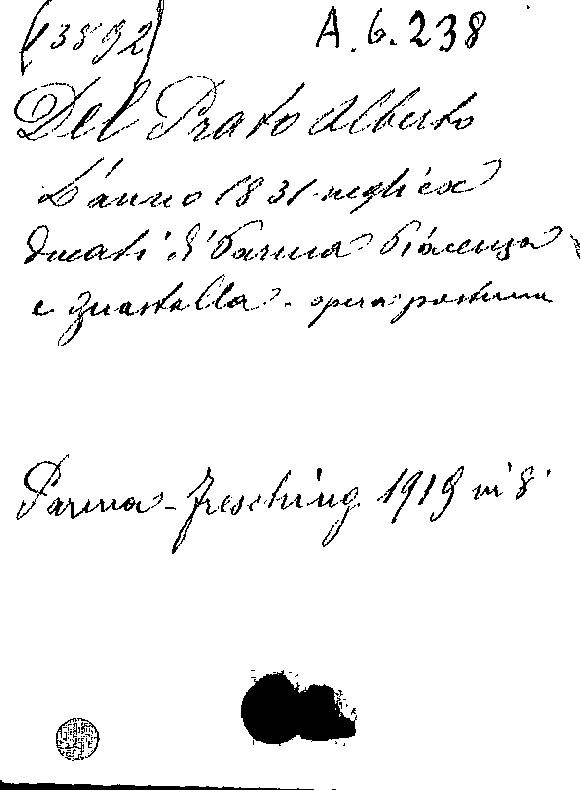 (3892)
A.6.238
Del Prato Alberto
L'anno 1831 negli ex
ducati di Parma Piacenza
e Guastalla - opera postuma
Parma - Fresching 1919 in 8°